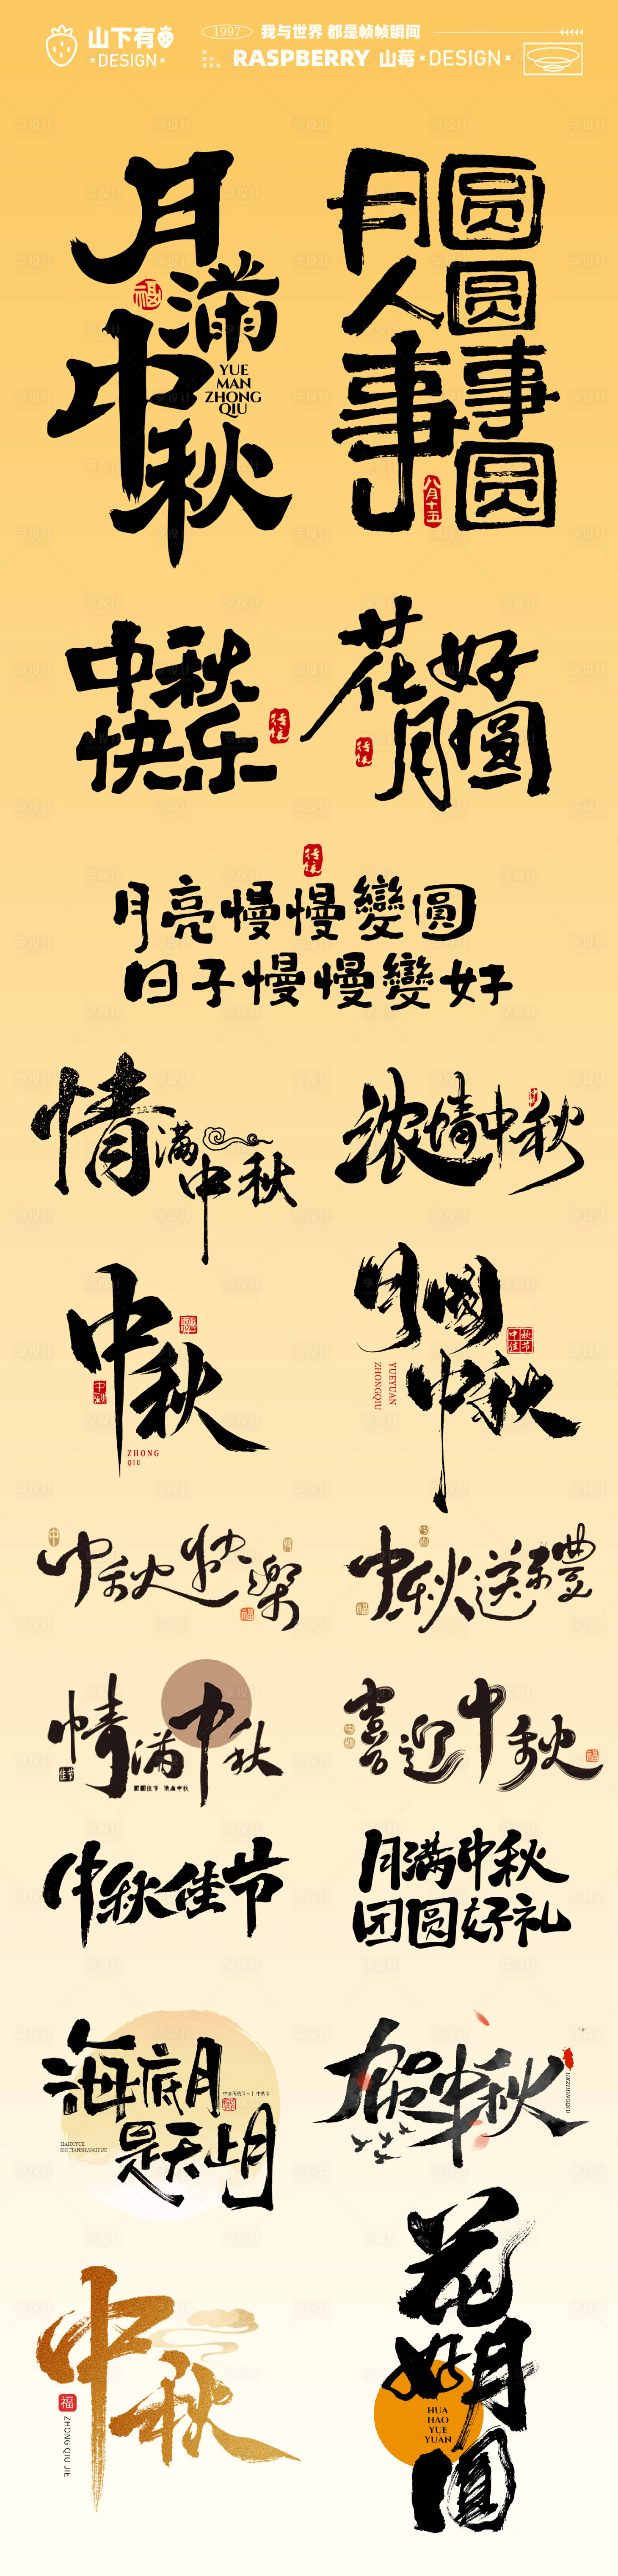 山下有
DESIGN
1997 我与世界 都是帧帧瞬间
RASPBERRY 山莓 DESIGN
月满中秋
福
YUE
MAN
ZHONG
QIU
月圆
人圆
事事圆
八月十五
中秋
快乐
花好
月圓
月亮慢慢變圓
日子慢慢變好
情满中秋
浓情中秋
中秋
ZHONG
QIU
月圆
中秋
中秋
佳节
YUEYUAN
ZHONGQIU
中秋快樂
福
中秋送禮
情满中秋
喜迎中秋
福
中秋佳节
月满中秋
团圆好礼
海底月
是天上月
贺中秋
中秋
福
ZHONG QIU JIE
花好月圆
HUA
HAO
YUE
YUAN